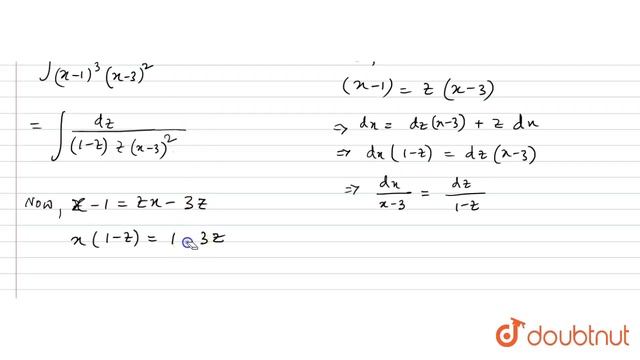 ∫ (x-1)³ (x-3)²
= ∫ dz / (1-z) z (x-3)²
Now, x-1 = zx - 3z
x(1-z) = 1 3z
(x-1) = z (x-3)
⇒ dx = dz(x-3) + z dx
⇒ dx(1-z) = dz(x-3)
⇒ dx/x-3 = dz/1-z
doubtnut